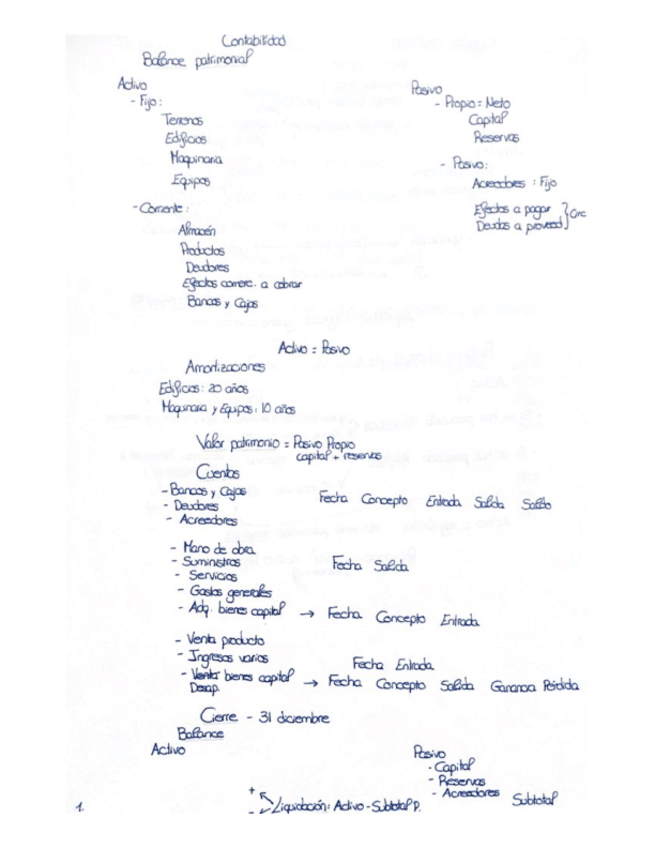 Contabilidad
Balance patrimonial
Activo
- Fijo:
Terrenos
Edificios
Maquinaria
Equipos
- Corriente:
Almacén
Productos
Deudores
Efectos comerc. a cobrar
Bancos y Cajas
Pasivo
- Propio = Neto
Capital
Reservas
- Pasivo:
Acreedores : Fijo
Efectos a pagar
Deudas a proveed } Circ
Activo = Pasivo
Amortizaciones
Edificios: 20 años
Maquinaria y Equipos: 10 años
Valor patrimonio = Pasivo Propio
capital + reservas
Cuentas
- Bancos y Cajas
- Deudores
- Acreedores
Fecha Concepto Entrada Salida Saldo
- Mano de obra
- Suministros
- Servicios
- Gastos generales
Fecha Salida
- Adq. bienes capital → Fecha Concepto Entrada
- Venta producto
- Ingresos varios
Fecha Entrada
- Venta bienes capital → Fecha Concepto Salida Ganancia Pérdida
Desap.
Cierre - 31 diciembre
Balance
Activo
Pasivo
- Capital
- Reservas
- Acreedores Subtotal
+
- Liquidación: Activo - Subtotal P.
1.